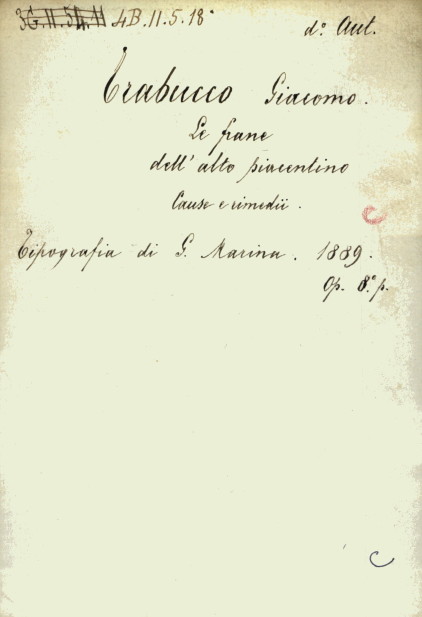 3G.11.51.11 4B.11.5.18
d.º Aut.
Trabucco Giacomo.
Le frane
dell'alto piacentino
Cause e rimedii.
Tipografia di G. Marina. 1889.
Op. 8.º p.
C
C